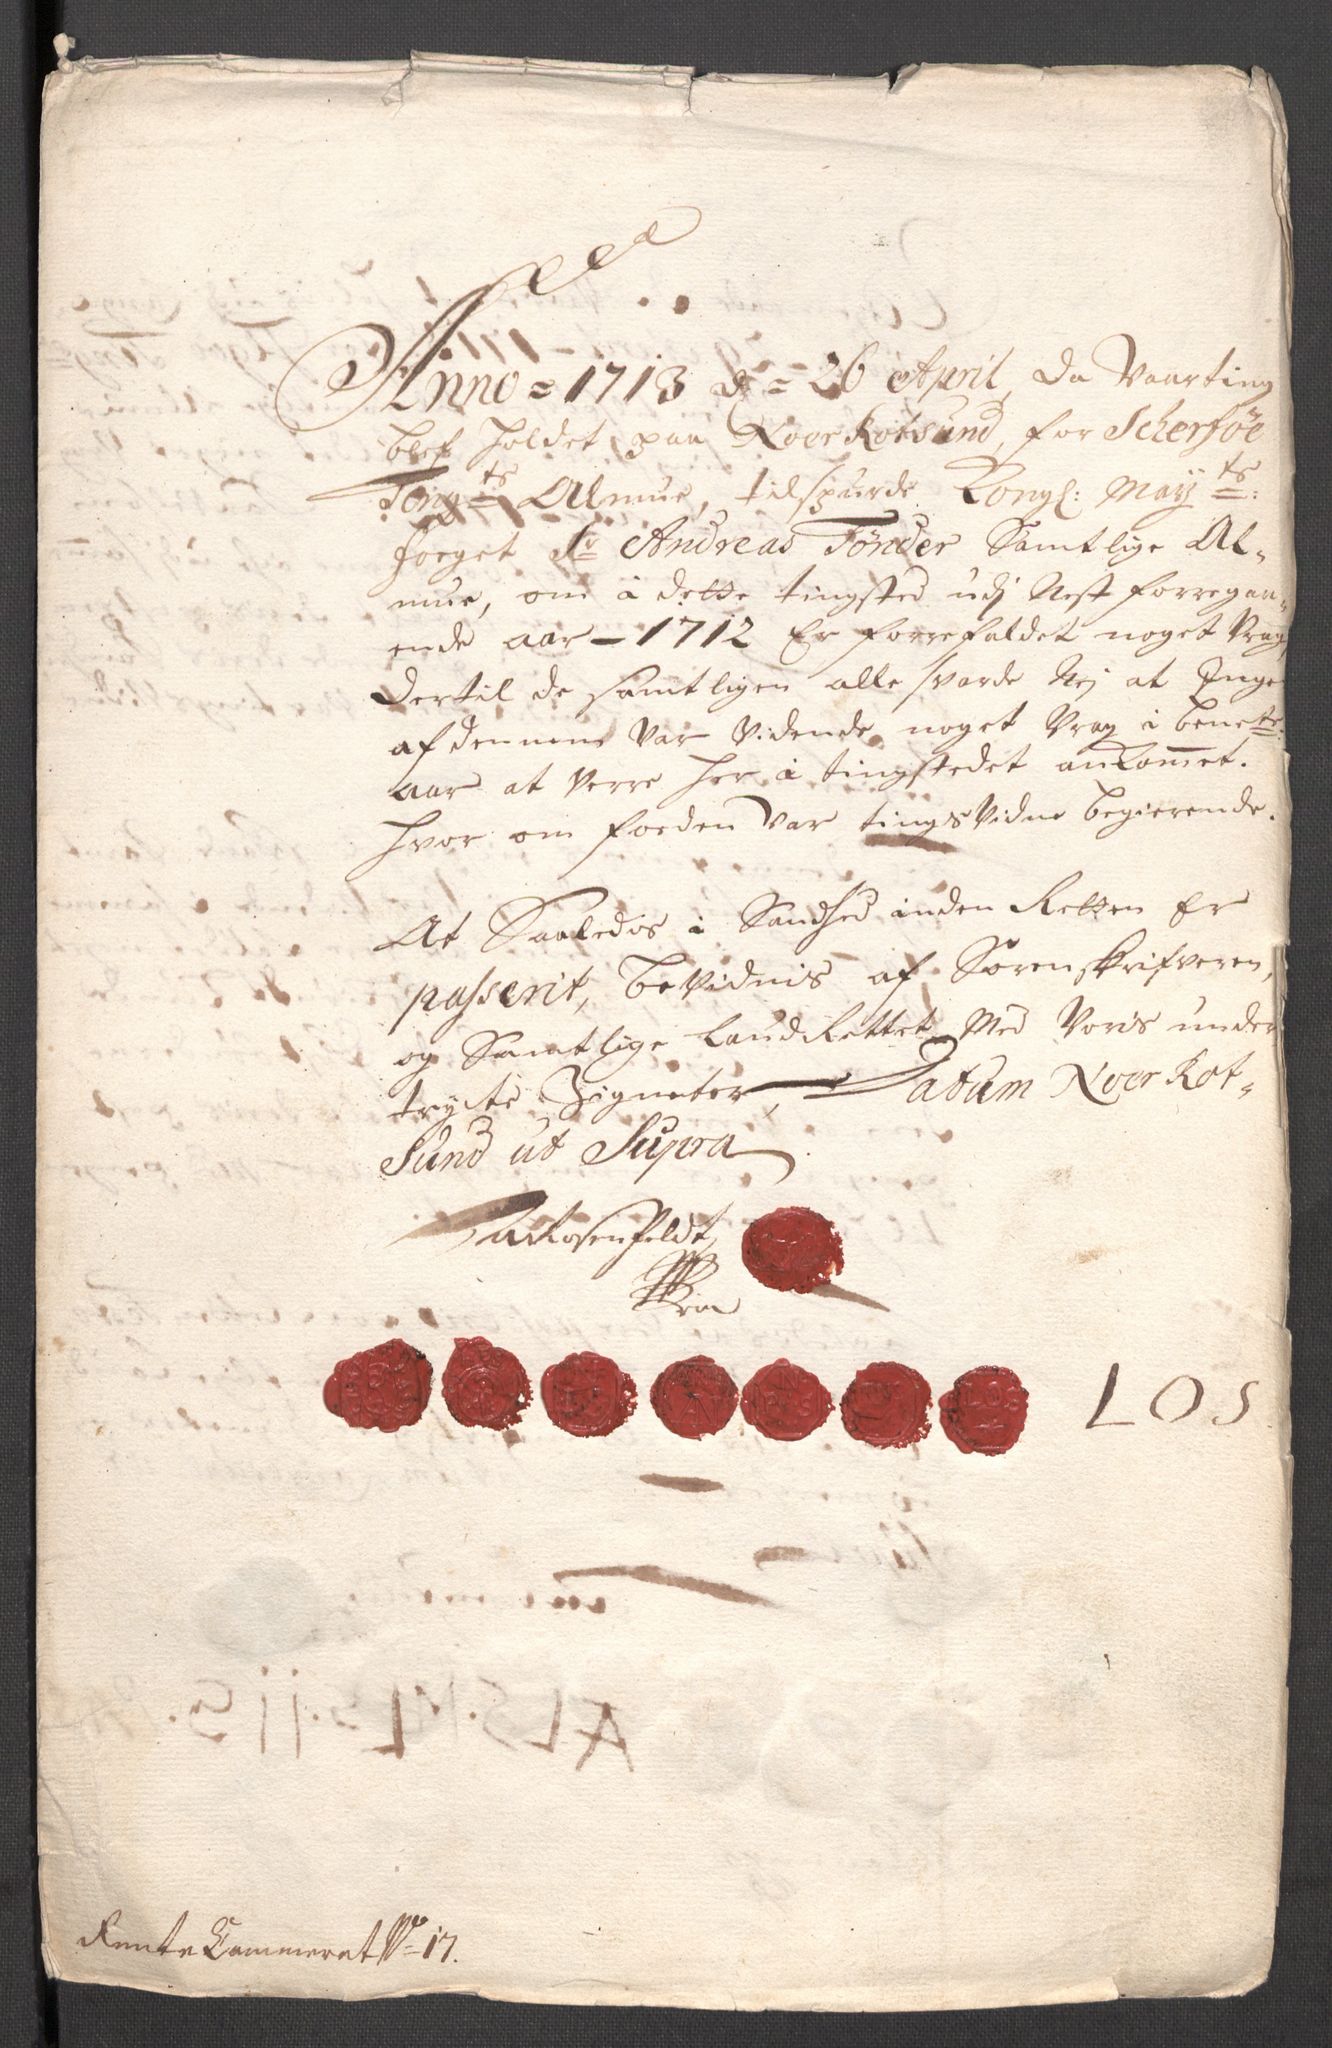 Anno = 1713 d = 26 April, da Vaarting
blef holdet paa Noer Rotsund, for Scherføe
Tings Almue, tilspurde Kongl: May ts:
foeget Sr Andreas Tønder Samtlige Al-
mue, om i dette tingsted udj Nest forregaa-
ende aar - 1712 Er forrefaldet noget Vrag,
dertil de samtligen alle svarde Nej at Ingen
af dennem var vidende noget Vrag i bente
aar at Verre her i tingstedet ankommet.
hvor om foeden var tingsvidne begierende.
At Saaledis i Sandhed inden Retten Er
passerit, beVidnis af Sorenskrifveren,
og Samtlige LaudRettet Med Voris under
tryckte Zigneter, Datum Noer Rot-
Sund ut Supra
Rosenfeldt
LOS
Rente Cammeret No 17.